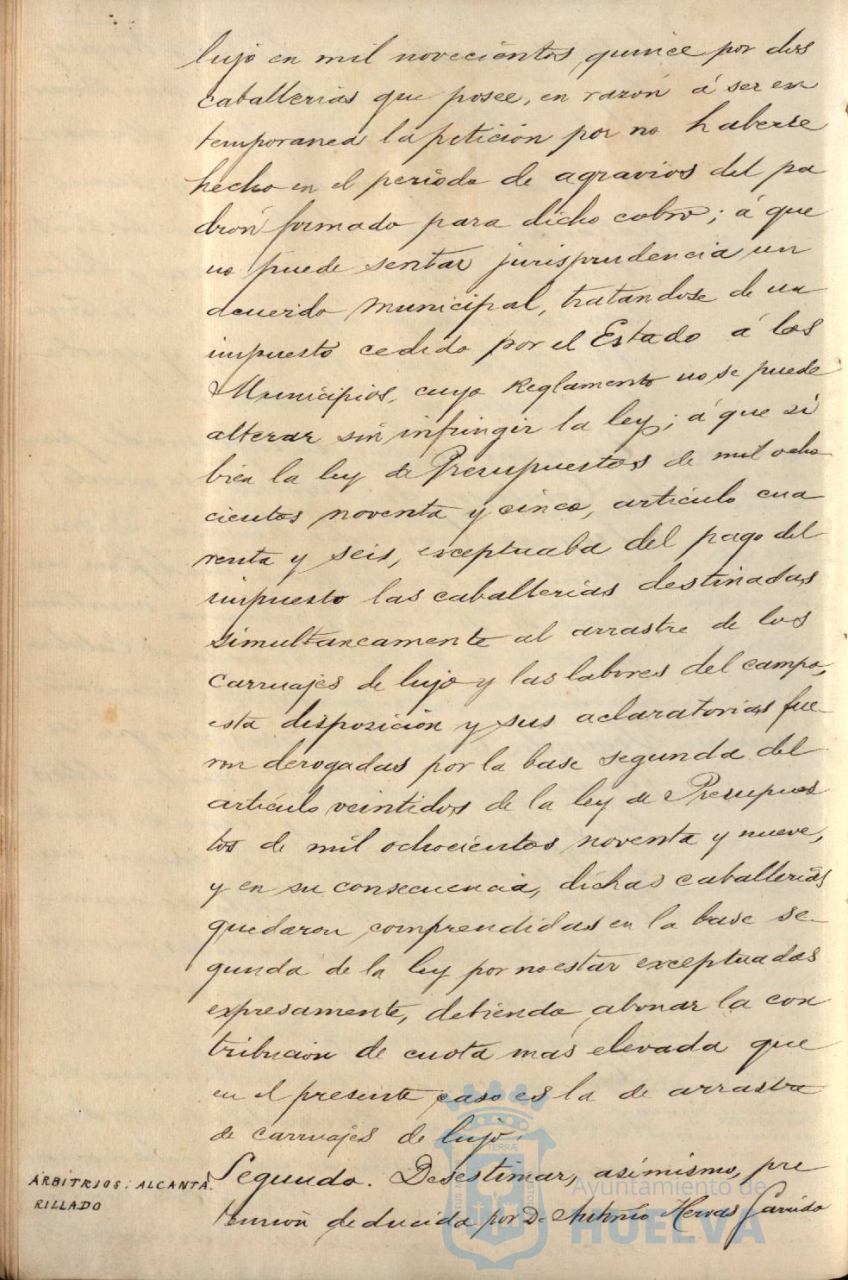 lujo en mil novecientos quince por dos
caballerias que posee, en razón á ser ex
temporanea la petición por no haberse
hecho en el período de agravios del pa
drón formado para dicho cobro; á que
no puede sentar jurisprudencia un
acuerdo municipal, tratandose de un
impuesto cedido por el Estado á los
Municipios, cuyo Reglamento no se puede
alterar sin infringir la ley; á que si
bien la ley de Presupuestos de mil ocho
cientos noventa y cinco, artículo cua
renta y seis, exceptuaba del pago del
impuesto las caballerias destinadas
simultaneamente al arrastre de los
carruajes de lujo y las labores del campo,
esta disposición y sus aclaratorias fue-
ron derogadas por la base segunda del
artículo veintidos de la ley de Presupues
tos de mil ochocientos noventa y nueve,
y en su consecuencia, dichas caballerias
quedaron comprendidas en la base se-
gunda de la ley por no estar exceptuadas
expresamente, debiendo abonar la con
tribución de cuota mas elevada que
en el presente caso es la de arrastre
de carruajes de lujo.
ARBITRIOS: ALCANTA
RILLADO
Segundo. Desestimar, asimismo, pre
tensión deducida por D. Antonio Hervas Garrido
Ayuntamiento de
HUELVA